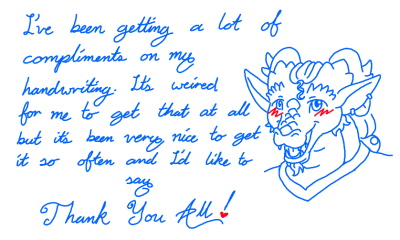 I've been getting a lot of
compliments on my
handwriting. It's weired
for me to get that at all
but it's been very nice to get
it so often and I'd like to
say
Thank You All!